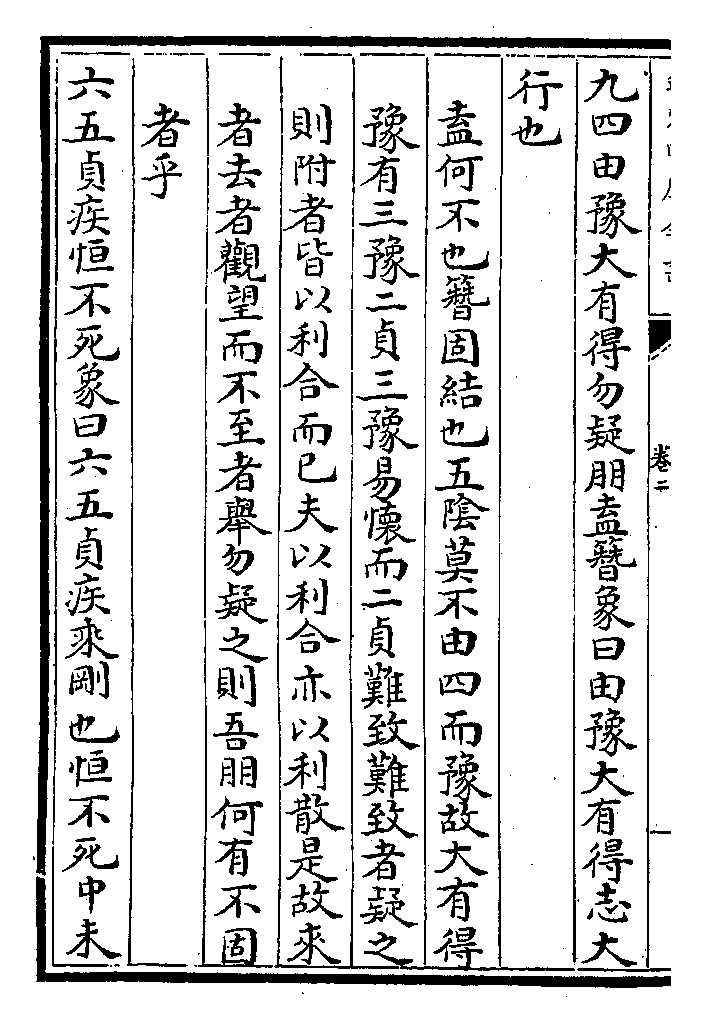 九四由豫大有得勿疑朋盍簪象曰由豫大有得志大
行也
盍何不也簪固結也五陰莫不由四而豫故大有得
豫有三豫二貞三豫易懷而二貞難致難致者疑之
則附者皆以利合而已夫以利合亦以利散是故來
者去者觀望而不至者舉勿疑之則吾朋何有不固
者乎
六五貞疾恒不死象曰六五貞疾乘剛也恒不死中未
卷二